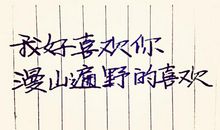 我好喜欢你
漫山遍野的喜欢